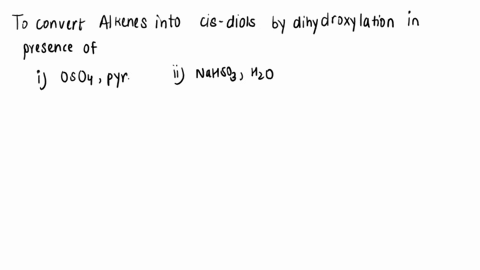 To convert Alkenes into cis-diols by dihydroxylation in
presence of
i) OsO4, pyr. ii) NaHSO3, H2O